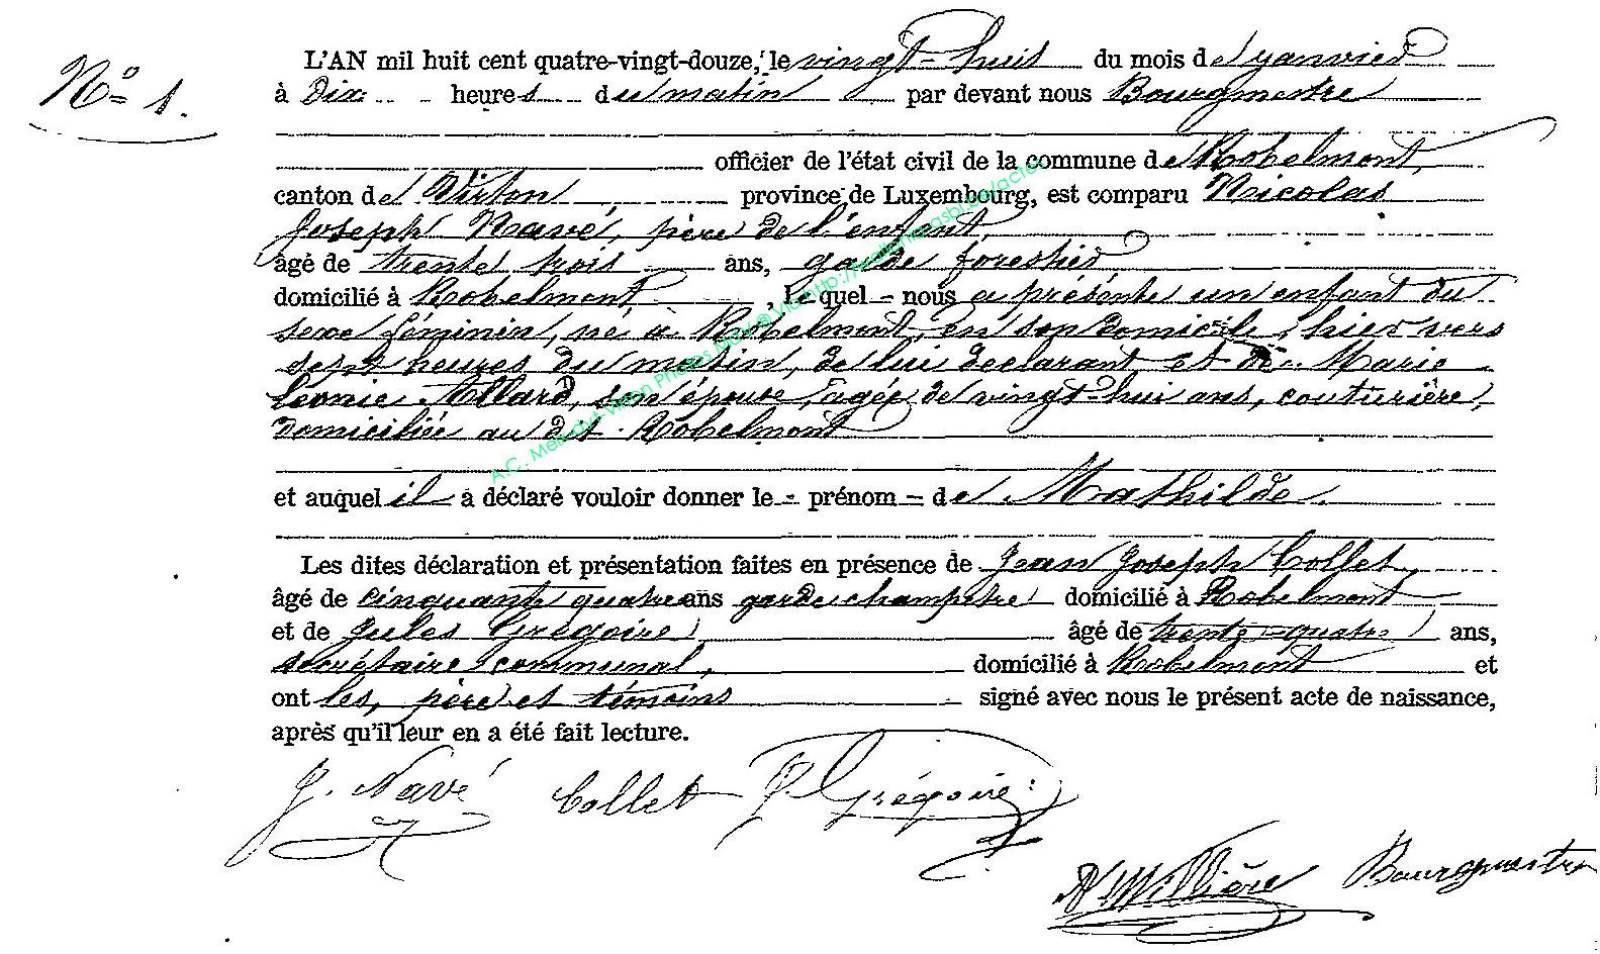 N° 1.
L'AN mil huit cent quatre-vingt-douze, le vingt-huit du mois de Janvier
à Dix heures du matin par devant nous Bourgmestre
officier de l'état civil de la commune de Robelmont,
canton de Virton, province de Luxembourg, est comparu Nicolas
Joseph Navé, père de l'enfant,
âgé de trente trois ans, garde forestier
domicilié à Robelmont, lequel nous a présenté un enfant du
sexe féminin, né à Robelmont, en son domicile, hier vers
sept heures du matin, de lui déclarant et de Marie
Léonie Allard, son épouse, agée de vingt-huit ans, couturière,
domiciliée au dt. Robelmont
et auquel il a déclaré vouloir donner le - prénom - de Mathilde.
Les dites déclaration et présentation faites en présence de Jean Joseph Collet,
âgé de cinquante quatre ans garde champêtre domicilié à Robelmont
et de Jules Grégoire, âgé de trente-quatre ans,
secrétaire communal, domicilié à Robelmont et
ont les, père et témoins signé avec nous le présent acte de naissance,
après qu'il leur en a été fait lecture.
J. Navé Collet J. Grégoire
Bourgmestre